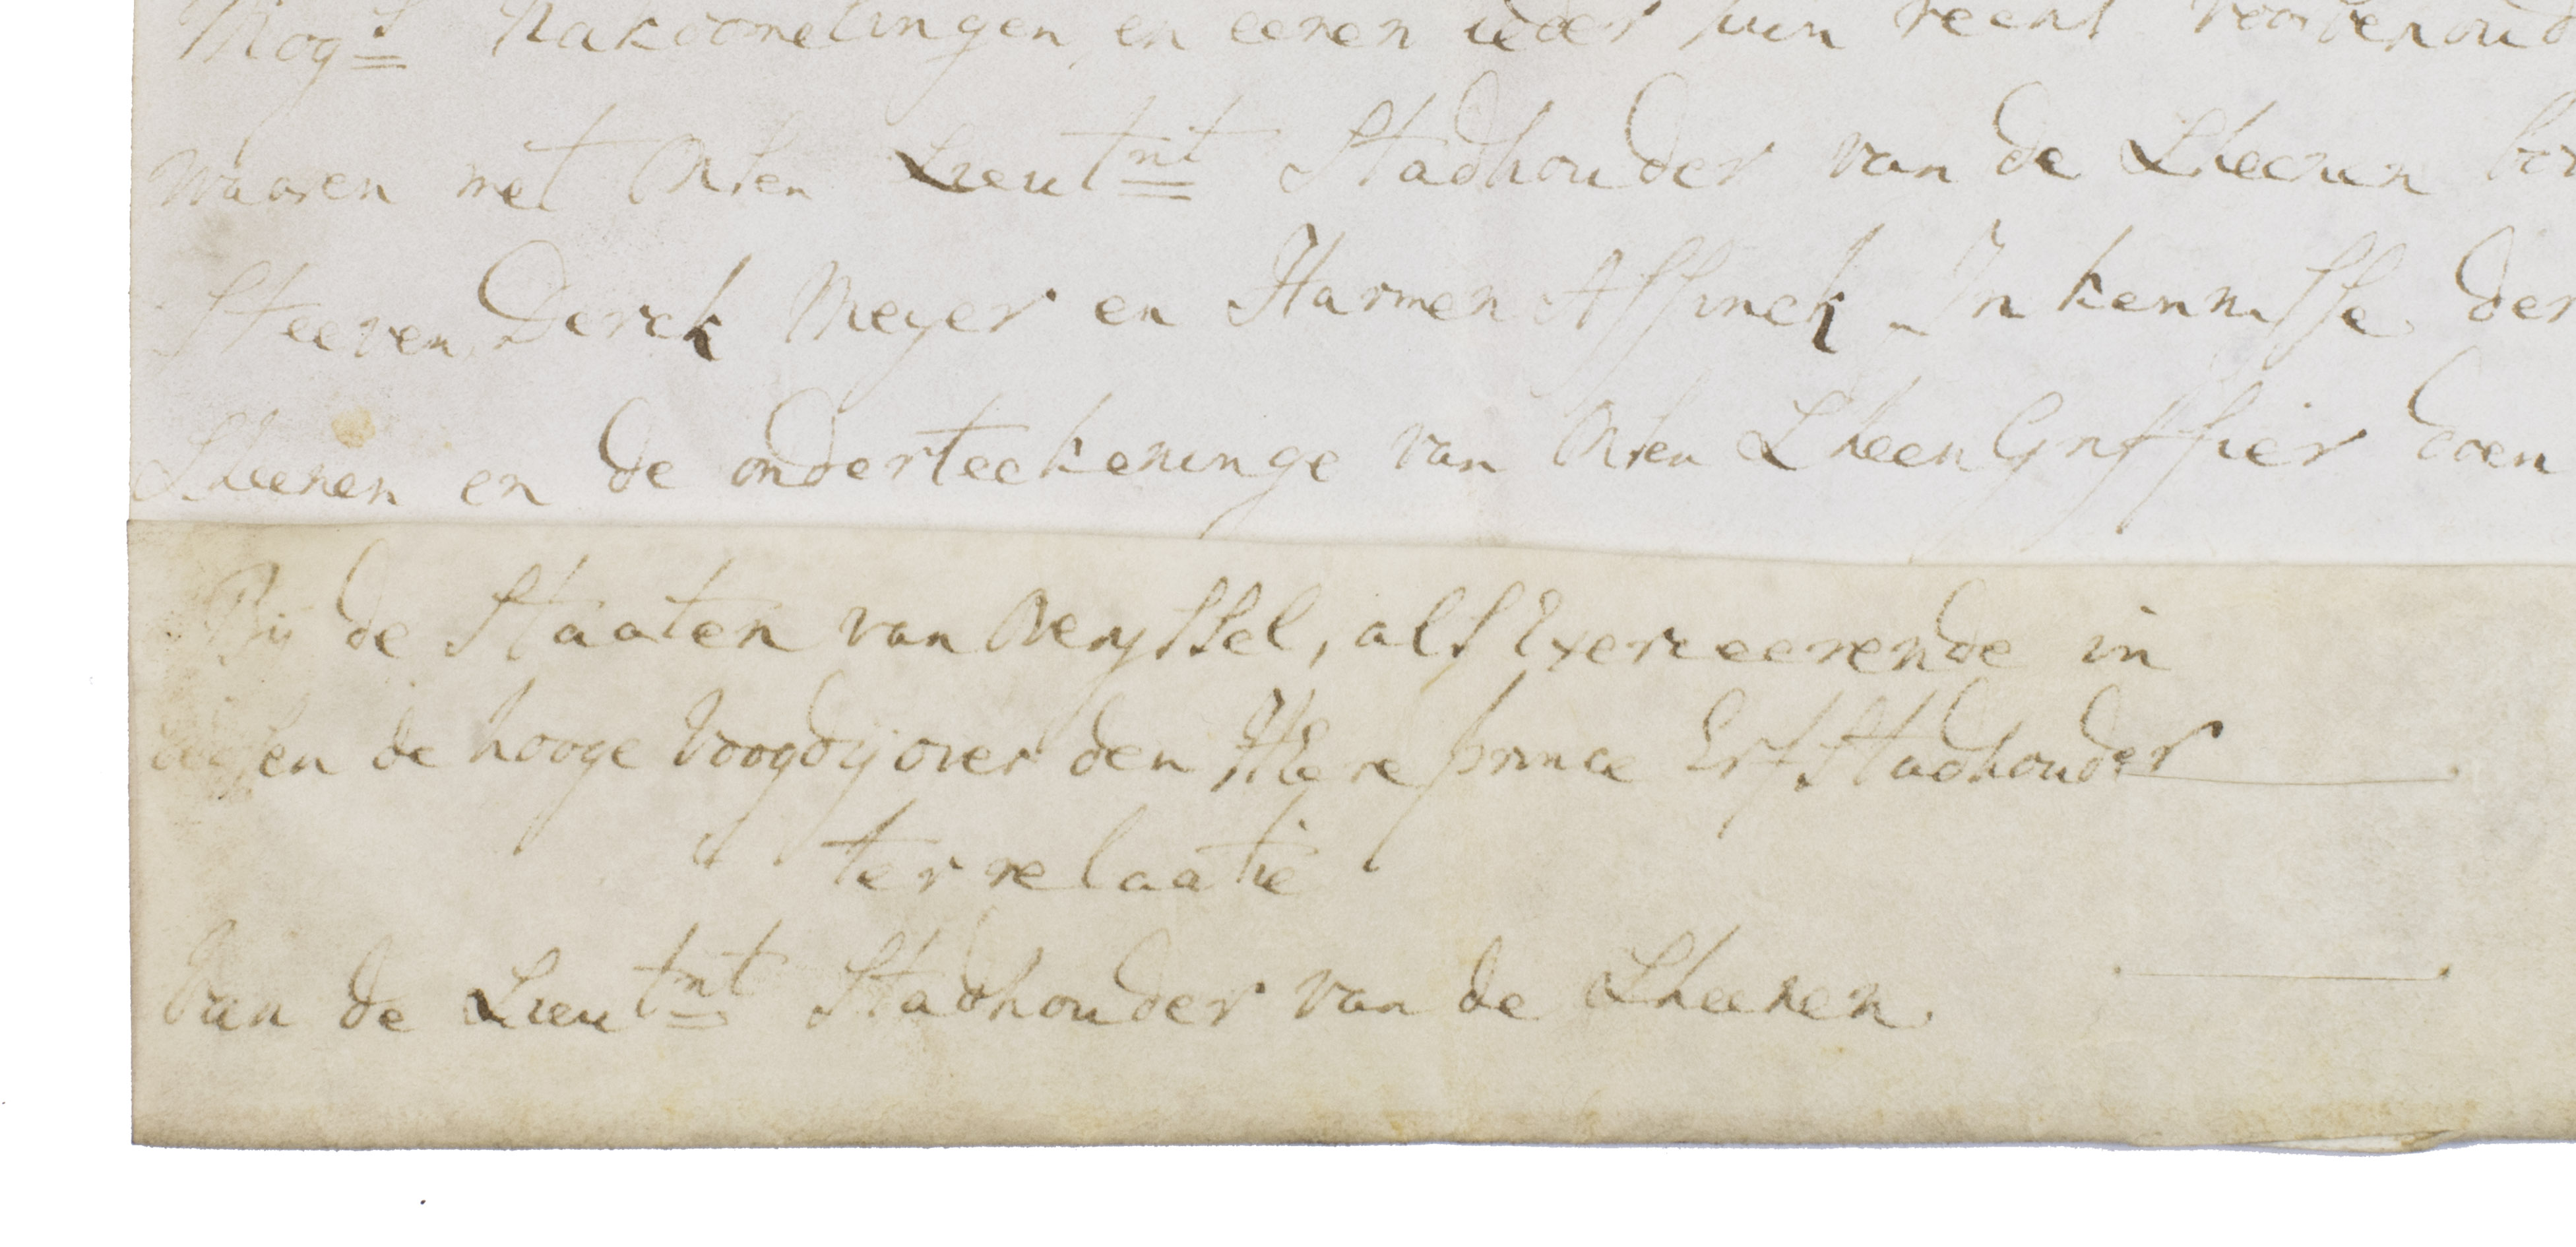 Mog:s Nakoomelingen en eenen ieder sijn recht voorbehoud
waaren met Onsen Lieutnt Stadhouder van de Lheenen
Steeven Derck Meyer en Harmen Assinck In kennisse der
Lheenen en de onderteekeninge van Onsen Lheen Griffier doen
Bij de Staaten van Overyssel, als Exerceerende in
deesen de hooge Voogdij over den Heere prince Erfstadhouder
ter relaatie
Van de Lieutnt Stadhouder van de Lheenen.